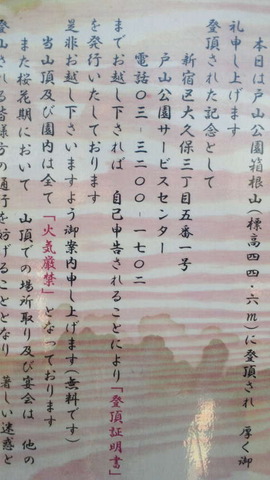 本日は戸山公園箱根山(標高四四・六m)に登頂され 厚く御
礼申し上げます
登頂された記念として
新宿区大久保三丁目五番一号
戸山公園サービスセンター
電話〇三-三二〇〇-一七〇二
までお越し下されば 自己申告されることにより「登頂証明書」
を発行いたしております
是非お越し下さいますよう御案内申し上げます(無料です)
当山頂及び園内は全て「火気厳禁」となっております
また桜花期において 山頂での場所取り及び宴会は 他の
登山される皆様方の通行を妨げることとなり 著しい迷惑と